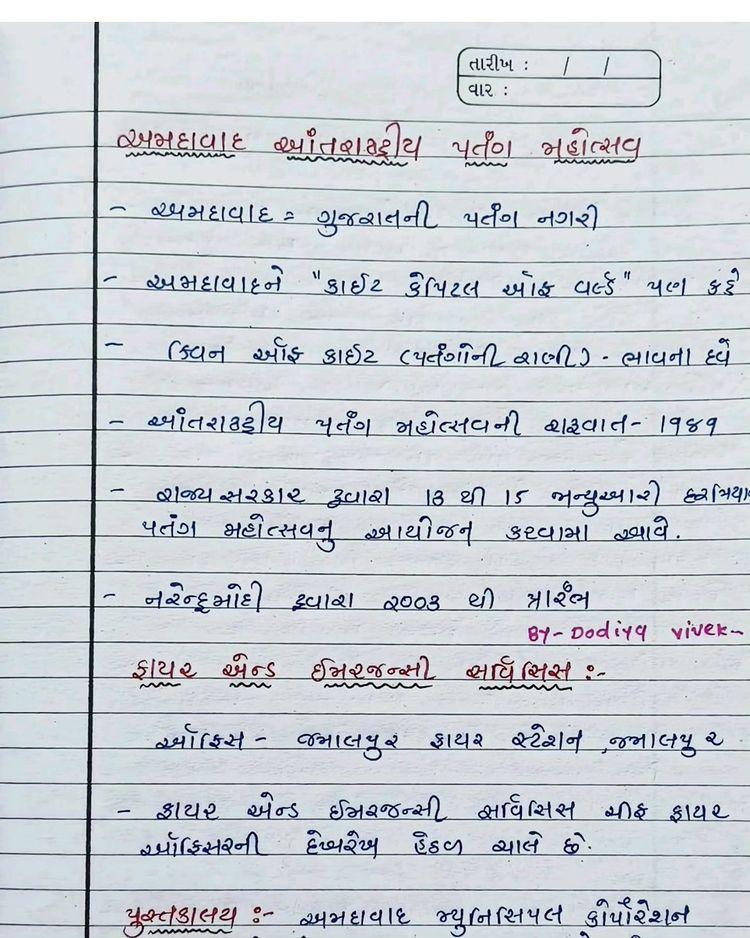 તારીખ : / /
વાર :
અમદાવાદ આંતરાષ્ટ્રીય પતંગ મહોત્સવ
- અમદાવાદ = ગુજરાતની પતંગ નગરી
- અમદાવાદને "કાઈટ કેપિટલ ઓફ વર્લ્ડ" પણ કહે
- ક્વિન ઓફ કાઈટ (પતંગોની રાણી) - ભાવના દવે
- આંતરાષ્ટ્રીય પતંગ મહોત્સવની શરૂવાત - ૧૯૮૧
- રાજ્ય સરકાર દ્વારા 13 થી 15 જાન્યુઆરી
પતંગ મહોત્સવનુ આયોજન કરવામા આવે.
- નરેન્દ્રમોદી દ્વારા ૨૦૦૩ થી પ્રારંભ
BY- Dodiya vivek-
ફાયર એન્ડ ઈમરજન્સી સર્વિસિસ :-
ઓફિસ - જમાલપુર ફાયર સ્ટેશન ,જમાલપુર
- ફાયર એન્ડ ઈમરજન્સી સર્વિસિસ ચીફ ફાયર
ઓફિસરની દેખરેખ હેઠળ ચાલે છે.
પુસ્તકાલય :- અમદાવાદ મ્યુનિસિપલ કોર્પોરેશન